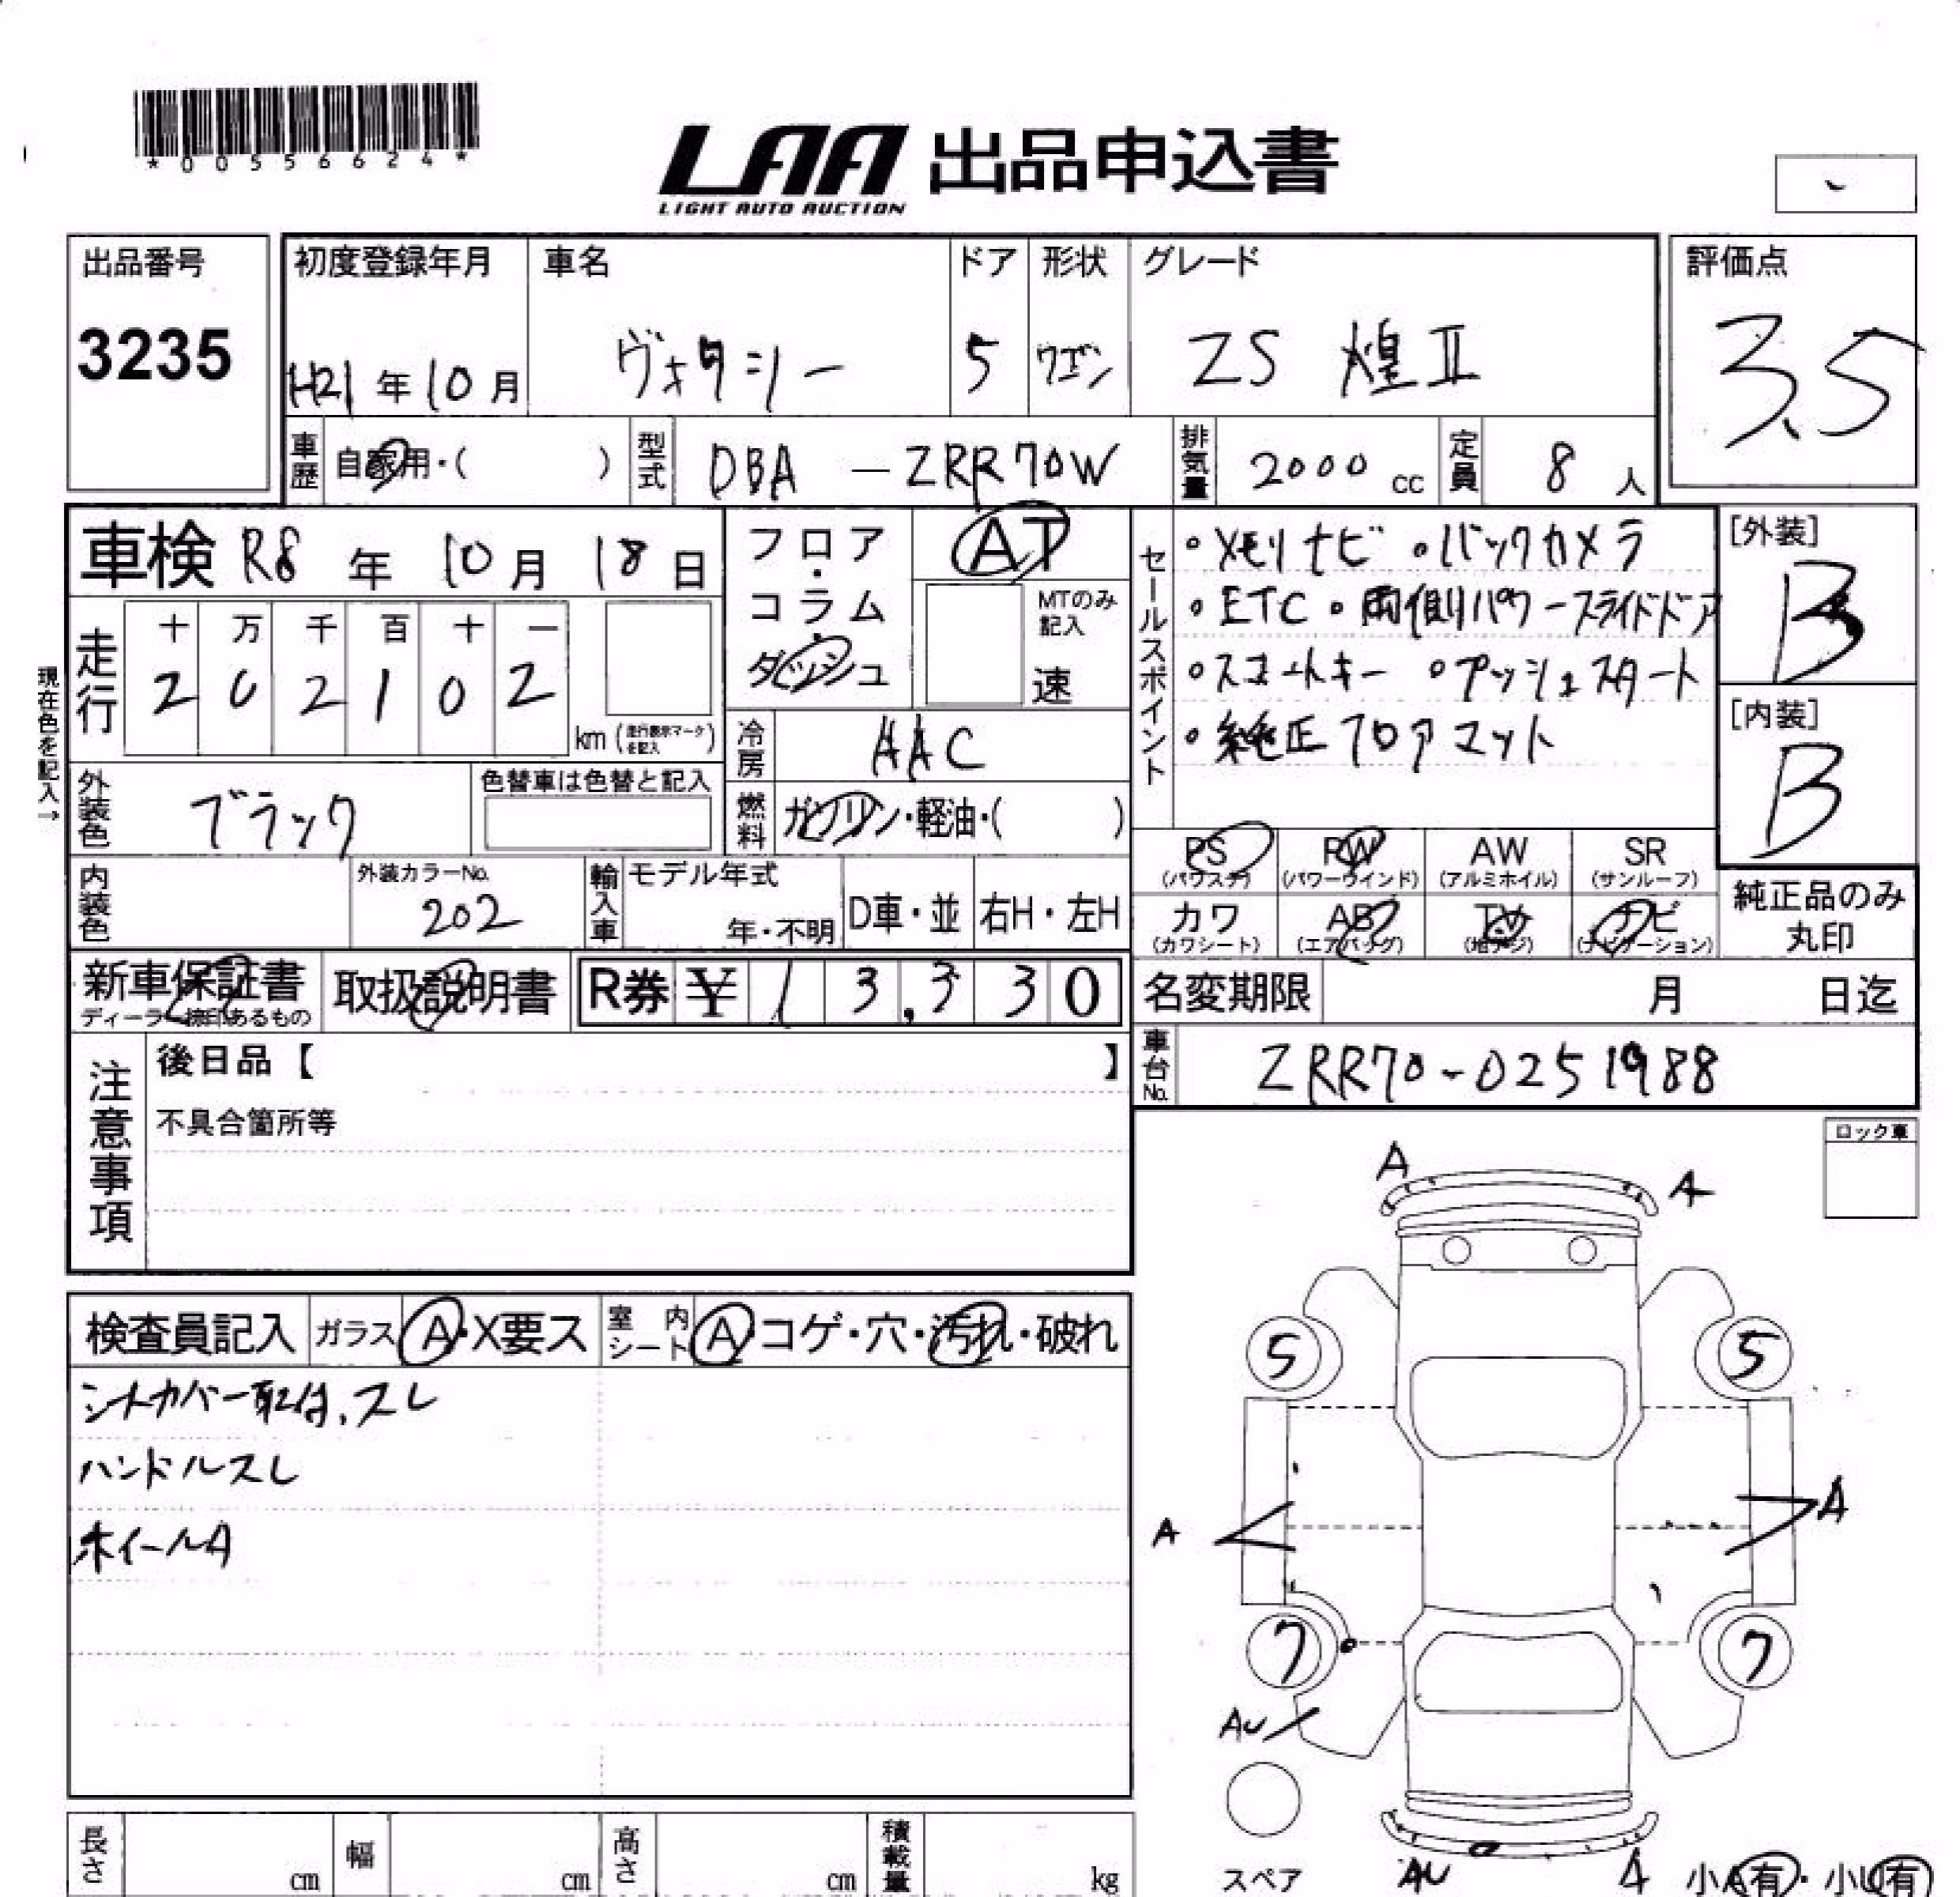 *00556624*
LAA 出品申込書
LIGHT AUTO AUCTION
出品番号
3235
初度登録年月
H21年10月
車名
ヴォクシー
ドア
5
形状
ワゴン
グレード
ZS 煌Ⅱ
評価点
3.5
車歴 自家用・( )
型式 DBA - ZRR70W
排気量 2000 cc
定員 8 人
車検 R8年 10月 18日
現在色を記入→
走行
十 万 千 百 十 一
2 0 2 1 0 2
km (走行表示マークを記入)
フロア・コラム・ダッシュ
AT
MTのみ記入
速
冷房 AAC
燃料 ガソリン・軽油・( )
外装色 ブラック
色替車は色替と記入
内装色
外装カラーNo.
202
輸入車
モデル年式
年・不明
D車・並
右H・左H
セールスポイント
・メモリナビ ・バックカメラ
・ETC ・両側パワースライドドア
・スマートキー ・プッシュスタート
・純正フロアマット
[外装]
B
[内装]
B
PS (パワステ)
PW (パワーウインド)
AW (アルミホイル)
SR (サンルーフ)
カワ (カワシート)
AB (エアバッグ)
TV (地デジ)
ナビ (ナビゲーション)
純正品のみ
丸印
新車保証書
ディーラー捺印あるもの
取扱説明書
R券 ¥ 13,330
名変期限 月 日迄
車台No. ZRR70-0251988
注意事項
後日品【 】
不具合箇所等
ロック車
検査員記入
ガラス A・X要ス
室内シート A・コゲ・穴・汚れ・破れ
シートカバー取付、スレ
ハンドルスレ
ホイールA
A
A
5
5
A
A
7
7
AU
スペア
AU
A
小A有・小U有
長さ cm
幅 cm
高さ cm
積載量 kg